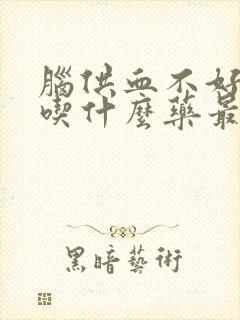 腦供血不好
喫什麼藥最
黑暗藝術